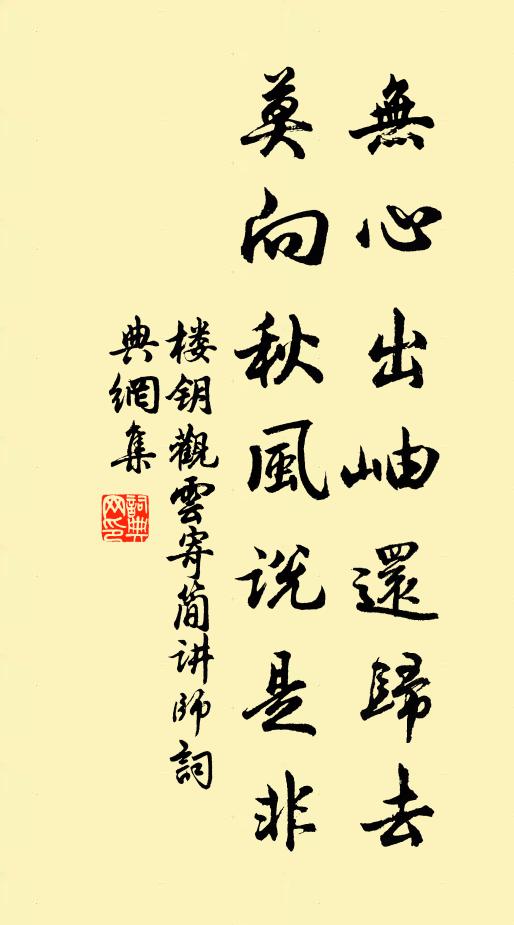 無心出岫還歸去
莫向秋風説是非
楼钥觀雲寄简讲师詞
典網集
詞典
网印